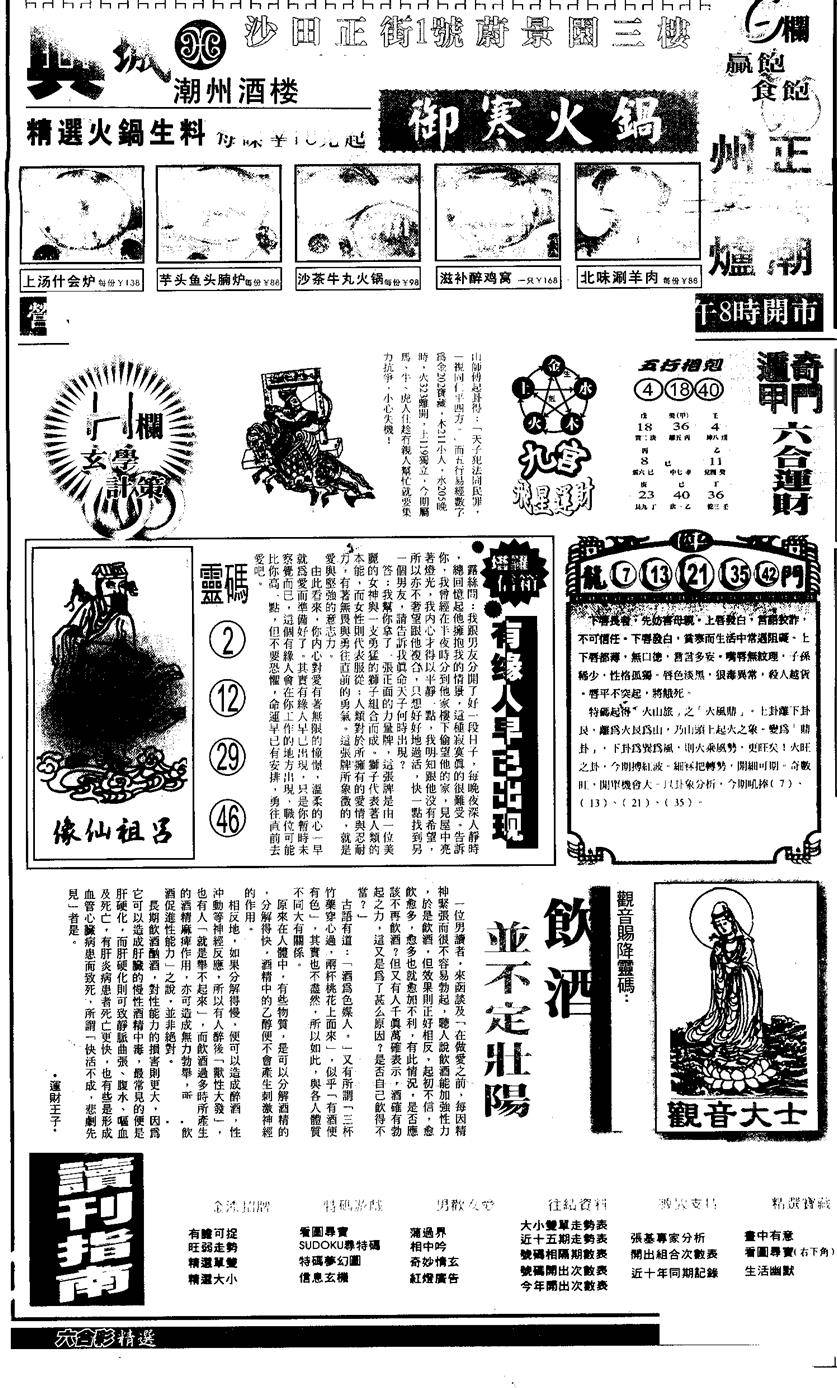 沙田正街1號蔚景園三樓
潮州酒楼
御寒火鍋
精選火鍋生料
欄
贏飽
食飽
正
州
潮
爐
上汤什会炉 每份￥138
芋头鱼头腩炉 每份￥88
沙茶牛丸火锅 每份￥98
滋补醉鸡窝 一只￥168
北味涮羊肉 每份￥88
午8時開市
奇門
遁甲
六合運財
五行相剋
4 18 40
18 36 4
8 11
23 40 36
金
水
木
火
土
九宮
飛星運財
山師傅起卦得：「天子犯法同民罪，
一視同仁平四方。」而五行易經數了
為金202寶藏，木211小人，水205晚
時，火323離開，土119獨立，今期屬
馬、牛、虎人仕趁有親人幫忙就要集
力抗爭，小心失機！
欄
玄學
計策
龍 7 13 21 35 42 門
下唇長者，先妨害母親。上唇發白，言語狡詐，
不可信任。下唇發白，貧寒而生活中常遇阻礙。上
下唇都薄，無口德，言言多妄。嘴唇無紋理，子孫
稀少，性格孤獨。唇色淡黑，狠毒異常，殺人越貨
。唇平不突起，將餓死。
特碼起得「火山旅」之「火風鼎」。上卦離下卦
艮，離為火艮為山，乃山頭上起火之象。變為「鼎
卦」，下卦為巽為風，則火乘風勢，更旺矣！火旺
之卦，今期搏紅波。細冧把轉勢，開細可期。奇數
旺，開單機會大。只卦象分析，今期吼捧（7）、
（13）、（21）、（35）。
塔羅
信箱
有緣人早已出現
露絲問：我跟男友分開了好一段日子，每晚夜深人靜時
，總回憶起他擁抱我的情景，這種寂寞真的很難受。告訴
你，我曾經在半夜時分到他家樓下偷望他的家，見屋中亮
著燈光，我內心才得以平靜一點，我明知跟他沒有希望，
所以亦不奢望跟他複合，只想好好地過活，快一點找到另
一個男友，請告訴我真命天子何時出現？
答：我幫你拿了一張正面的力量牌，這張牌是由一位美
麗的女神與一支勇猛的獅子組合而成。獅子代表著人類的
本能，而女性則代表服從；人類對於所擁有的愛情與忍耐
力，有著無畏與勇往直前的勇氣。這張牌所象徵的，就是
愛與堅強的意志力。
由此看來，你內心對愛有著無限的憧憬，溫柔的心一早
就為愛而準備好了。其實有緣人早已出現，只是你暫時未
察覺而已，這個有緣人會在你工作的地方出現，職位可能
比你高一點，但不要恐懼，命運早已有安排，勇往直前去
愛吧。
靈碼
2
12
29
46
呂祖仙像
觀音賜降靈碼：
觀音大士
飲酒
並不定壯陽
一位男讀者，來函談及「在做愛之前，每因精
神緊張而很不容易勃起，聽人說飲酒能加強性力
，於是飲酒，但效果則正好相反。起初不信，愈
飲愈多，愈多也就愈加不利，有此情況，是否應
該不再飲酒？但又有人千真萬確表示，酒確有勃
起之力，這又是為了甚么原因？是否自己飲得不
當？」
古語有道：「酒為色媒人。」又有所謂「三杯
竹葉穿心過，兩杯桃花上面來」，似乎「有酒便
有色」，其實也不盡然，所以如此，與各人體質
不同大有關係。
原來在人體中，有些物質，是可以分解酒精的
，分解得快，酒精中的乙醇便不會產生刺激神經
的作用。
相反地，如果分解得慢，便可以造成醉酒，性
沖動等神經反應，所以有人醉後「獸性大發」，
也有人「就是舉不起來」，而飲酒過多時所產生
的酒精麻痺作用，亦可造成無力勃舉，所
酒促進性能力」之說，並非絕對。
長期飲酒酗酒，對性能力的損害則更大，因為
它可以造成肝臟的慢性酒精中毒，最常見的便是
肝硬化，而肝硬化則可致靜脈曲張、腹水、嘔血
及死亡，有肝炎病患者死亡更快，也有些是形成
血管心臟病患而致死，所謂「快活不成，悲劇先
見」者是。
·運財王子·
讀刊指南
有膽可捉
旺弱走勢
精選單雙
精選大小
特碼遊戲
看圖尋寶
SUDOKU尋特碼
特碼夢幻圖
信息玄機
男歡女愛
蒲過界
相中吟
奇妙情玄
紅燈廣告
往績資料
大小雙單走勢表
近十五期走勢表
號碼相隔期數表
號碼開出次數表
今年開出次數表
張基專家分析
開出組合次數表
近十年同期記錄
精選寶藏
畫中有意
看圖尋寶(右下角)
生活幽默
六合彩精選